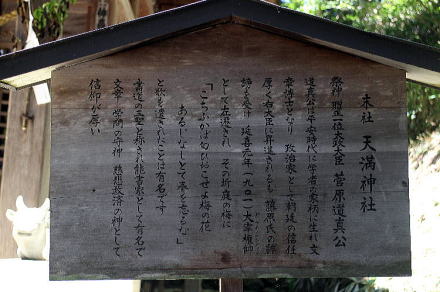 本社 天満神社
祭神 贈正一位太政大臣 菅原道真公
道真公は平安時代に学者の家柄に生れ 文
章博士となり 政治家として朝廷の信任
厚く右大臣に昇進されるも 藤原氏の讒
訴を受け 延喜元年(九〇一)大宰権帥
として左遷され その折庭の梅に
「こちふかば匂ひおこせよ梅の花
あるじなしとて春を忘るな」
と詠を遺されたことは有名です
書道の三聖と称され能書家として有名で
文章 学問の守神 慈悲救済の神として
信仰が厚い